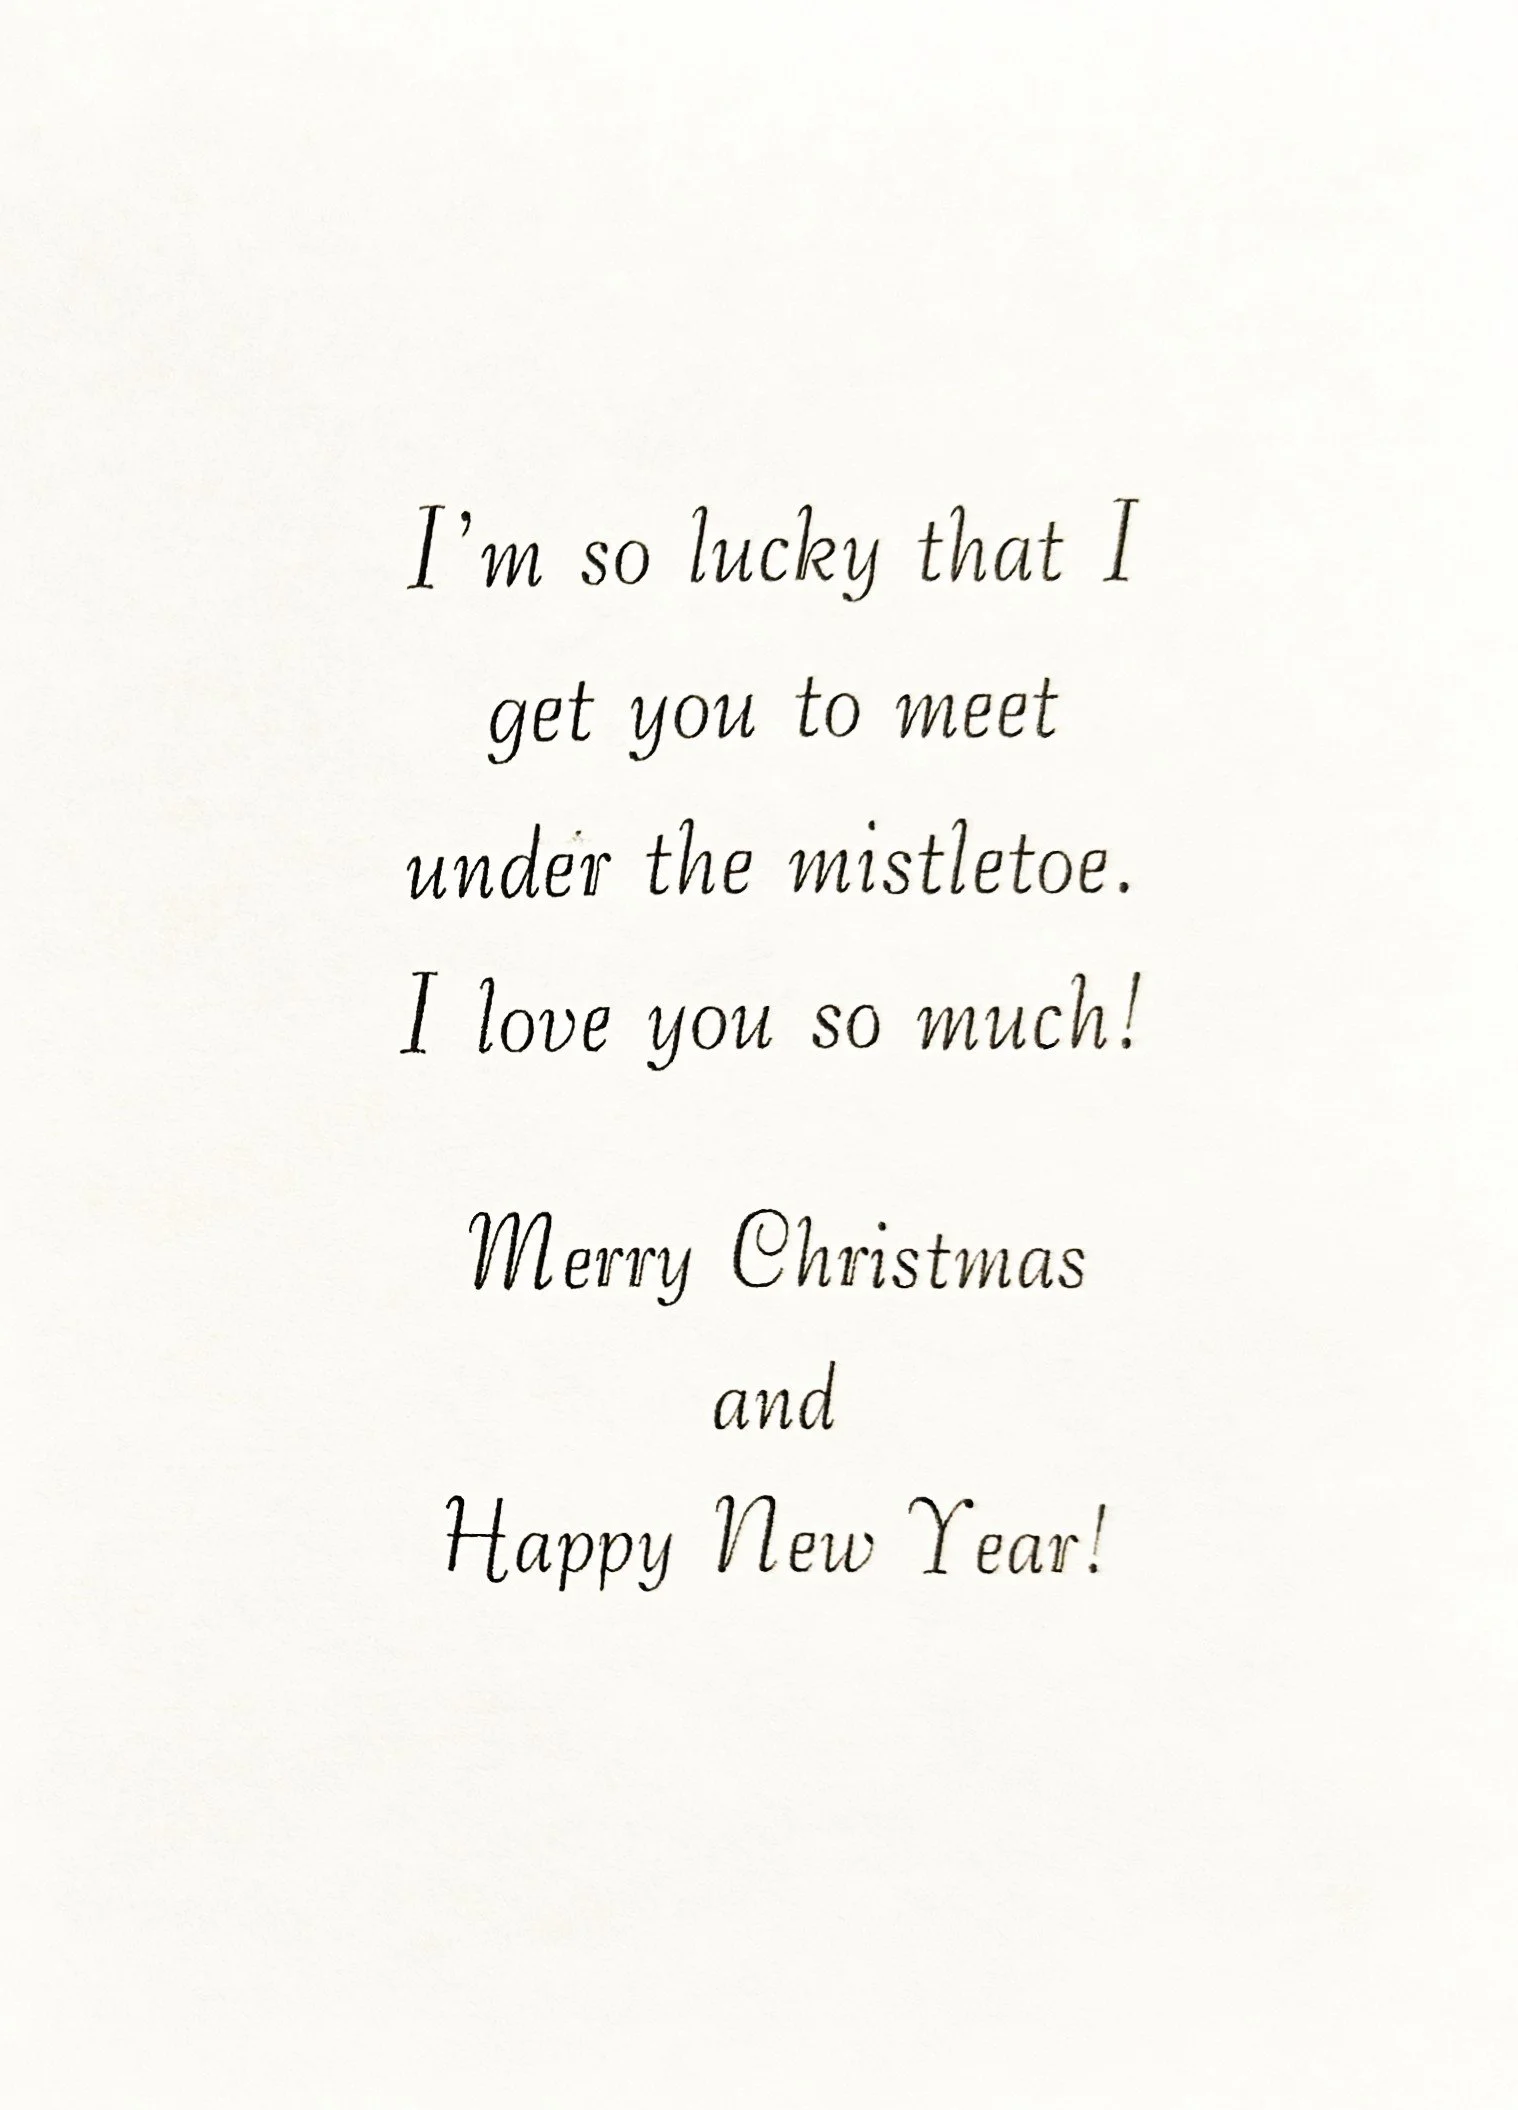 I'm so lucky that I
get you to meet
under the mistletoe.
I love you so much!
Merry Christmas
and
Happy New Year!